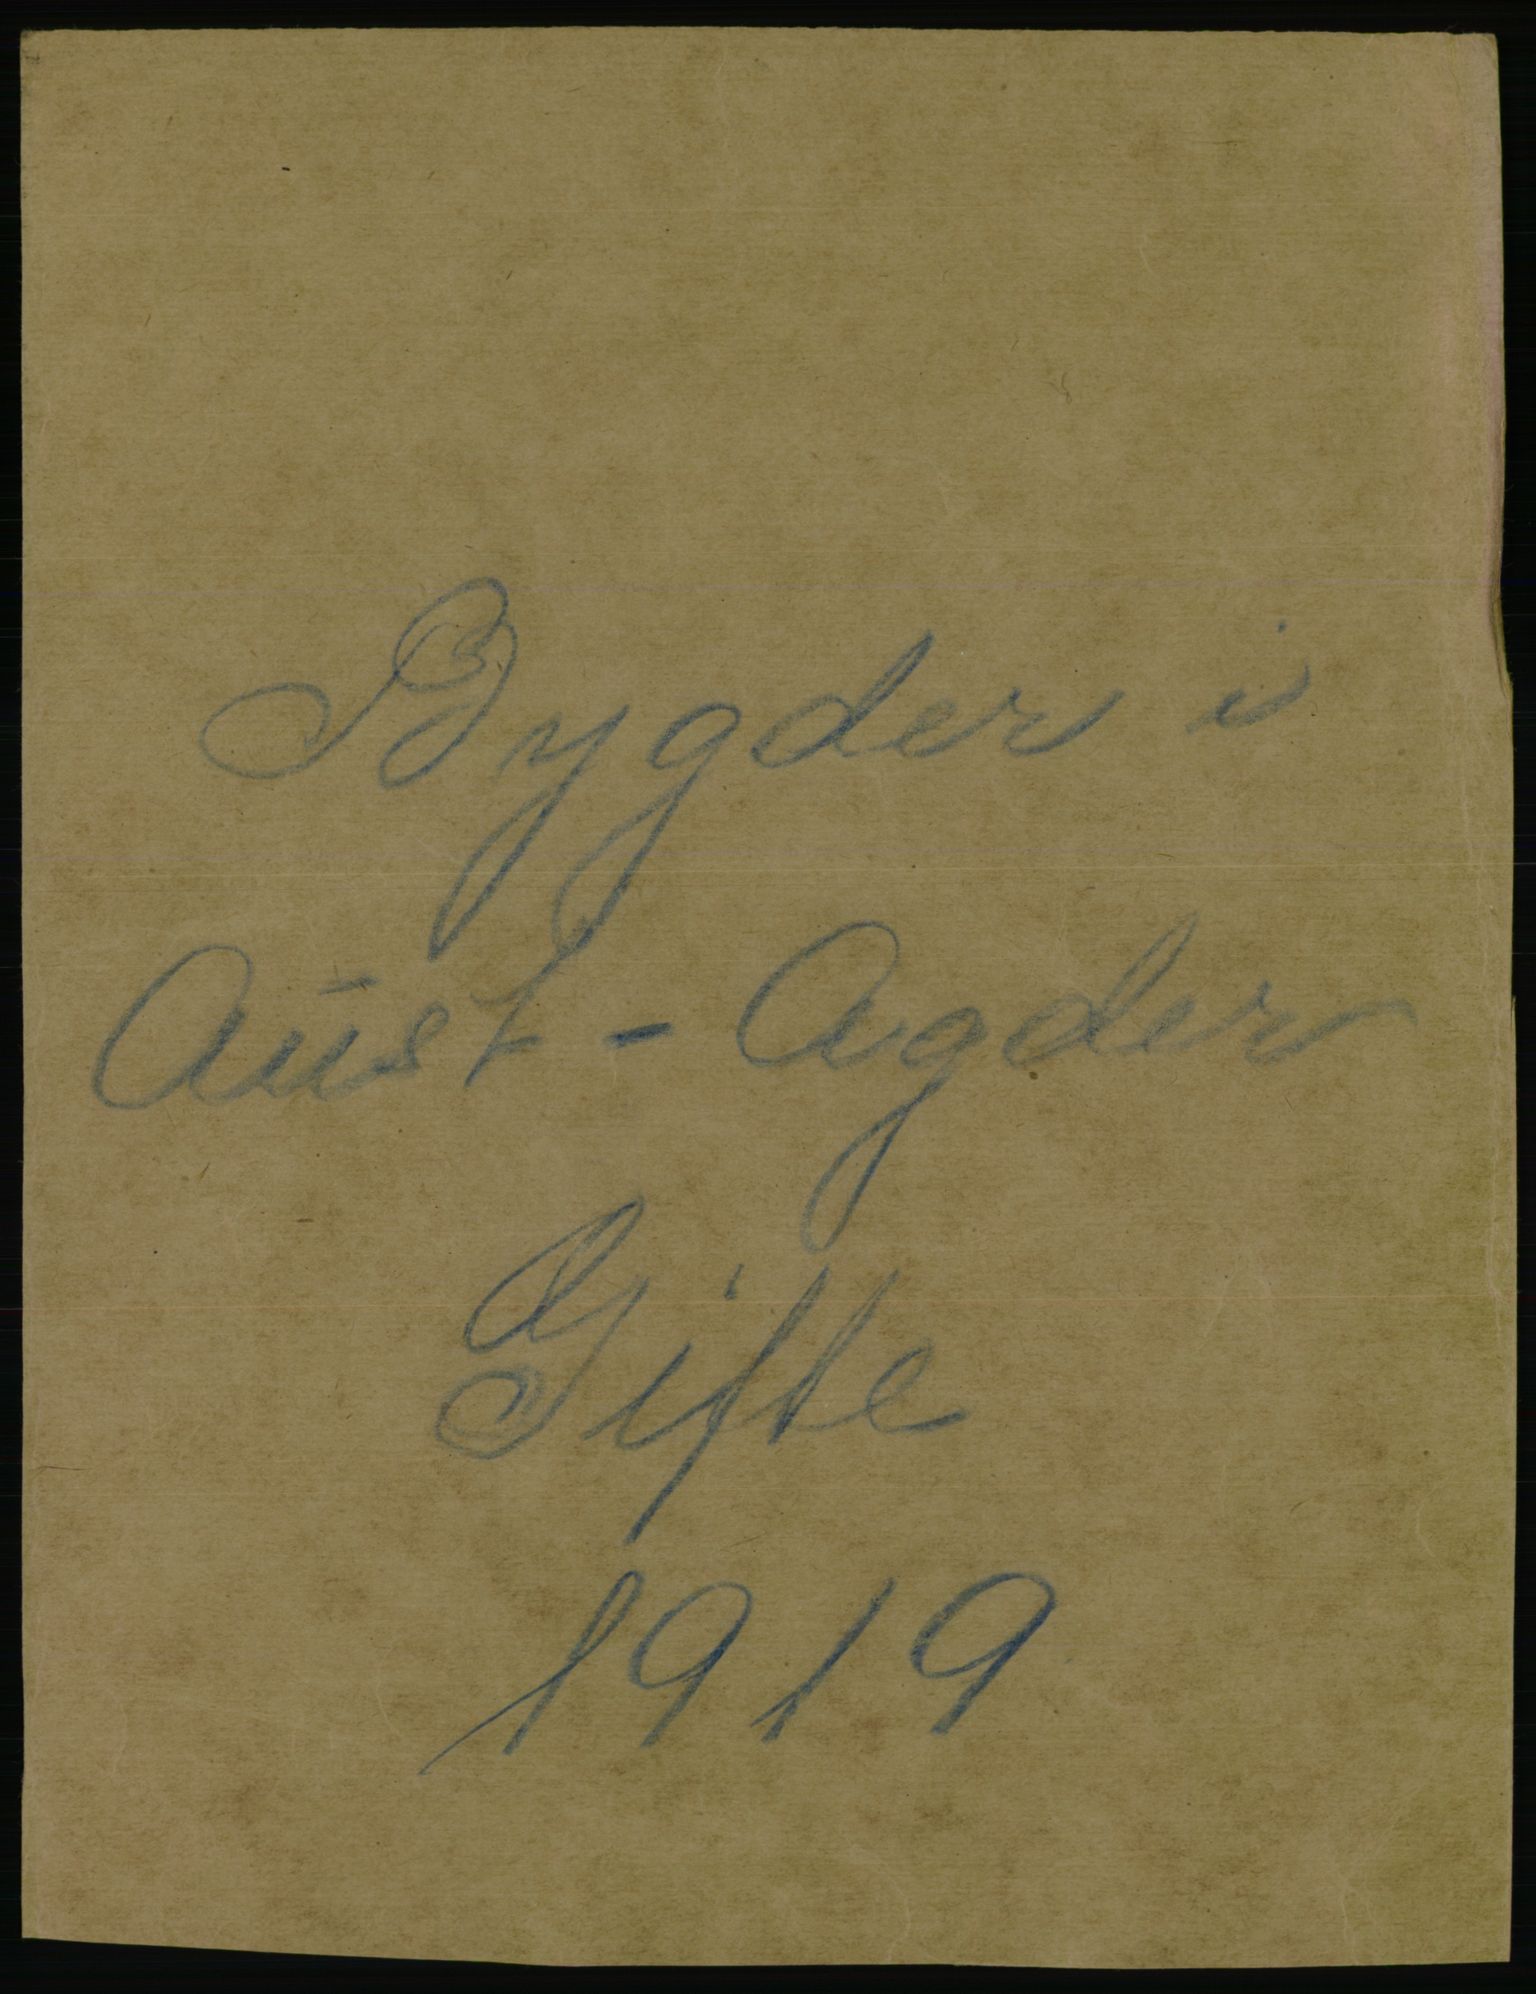 Bygder i
Aust-Agder
Gifte
1919